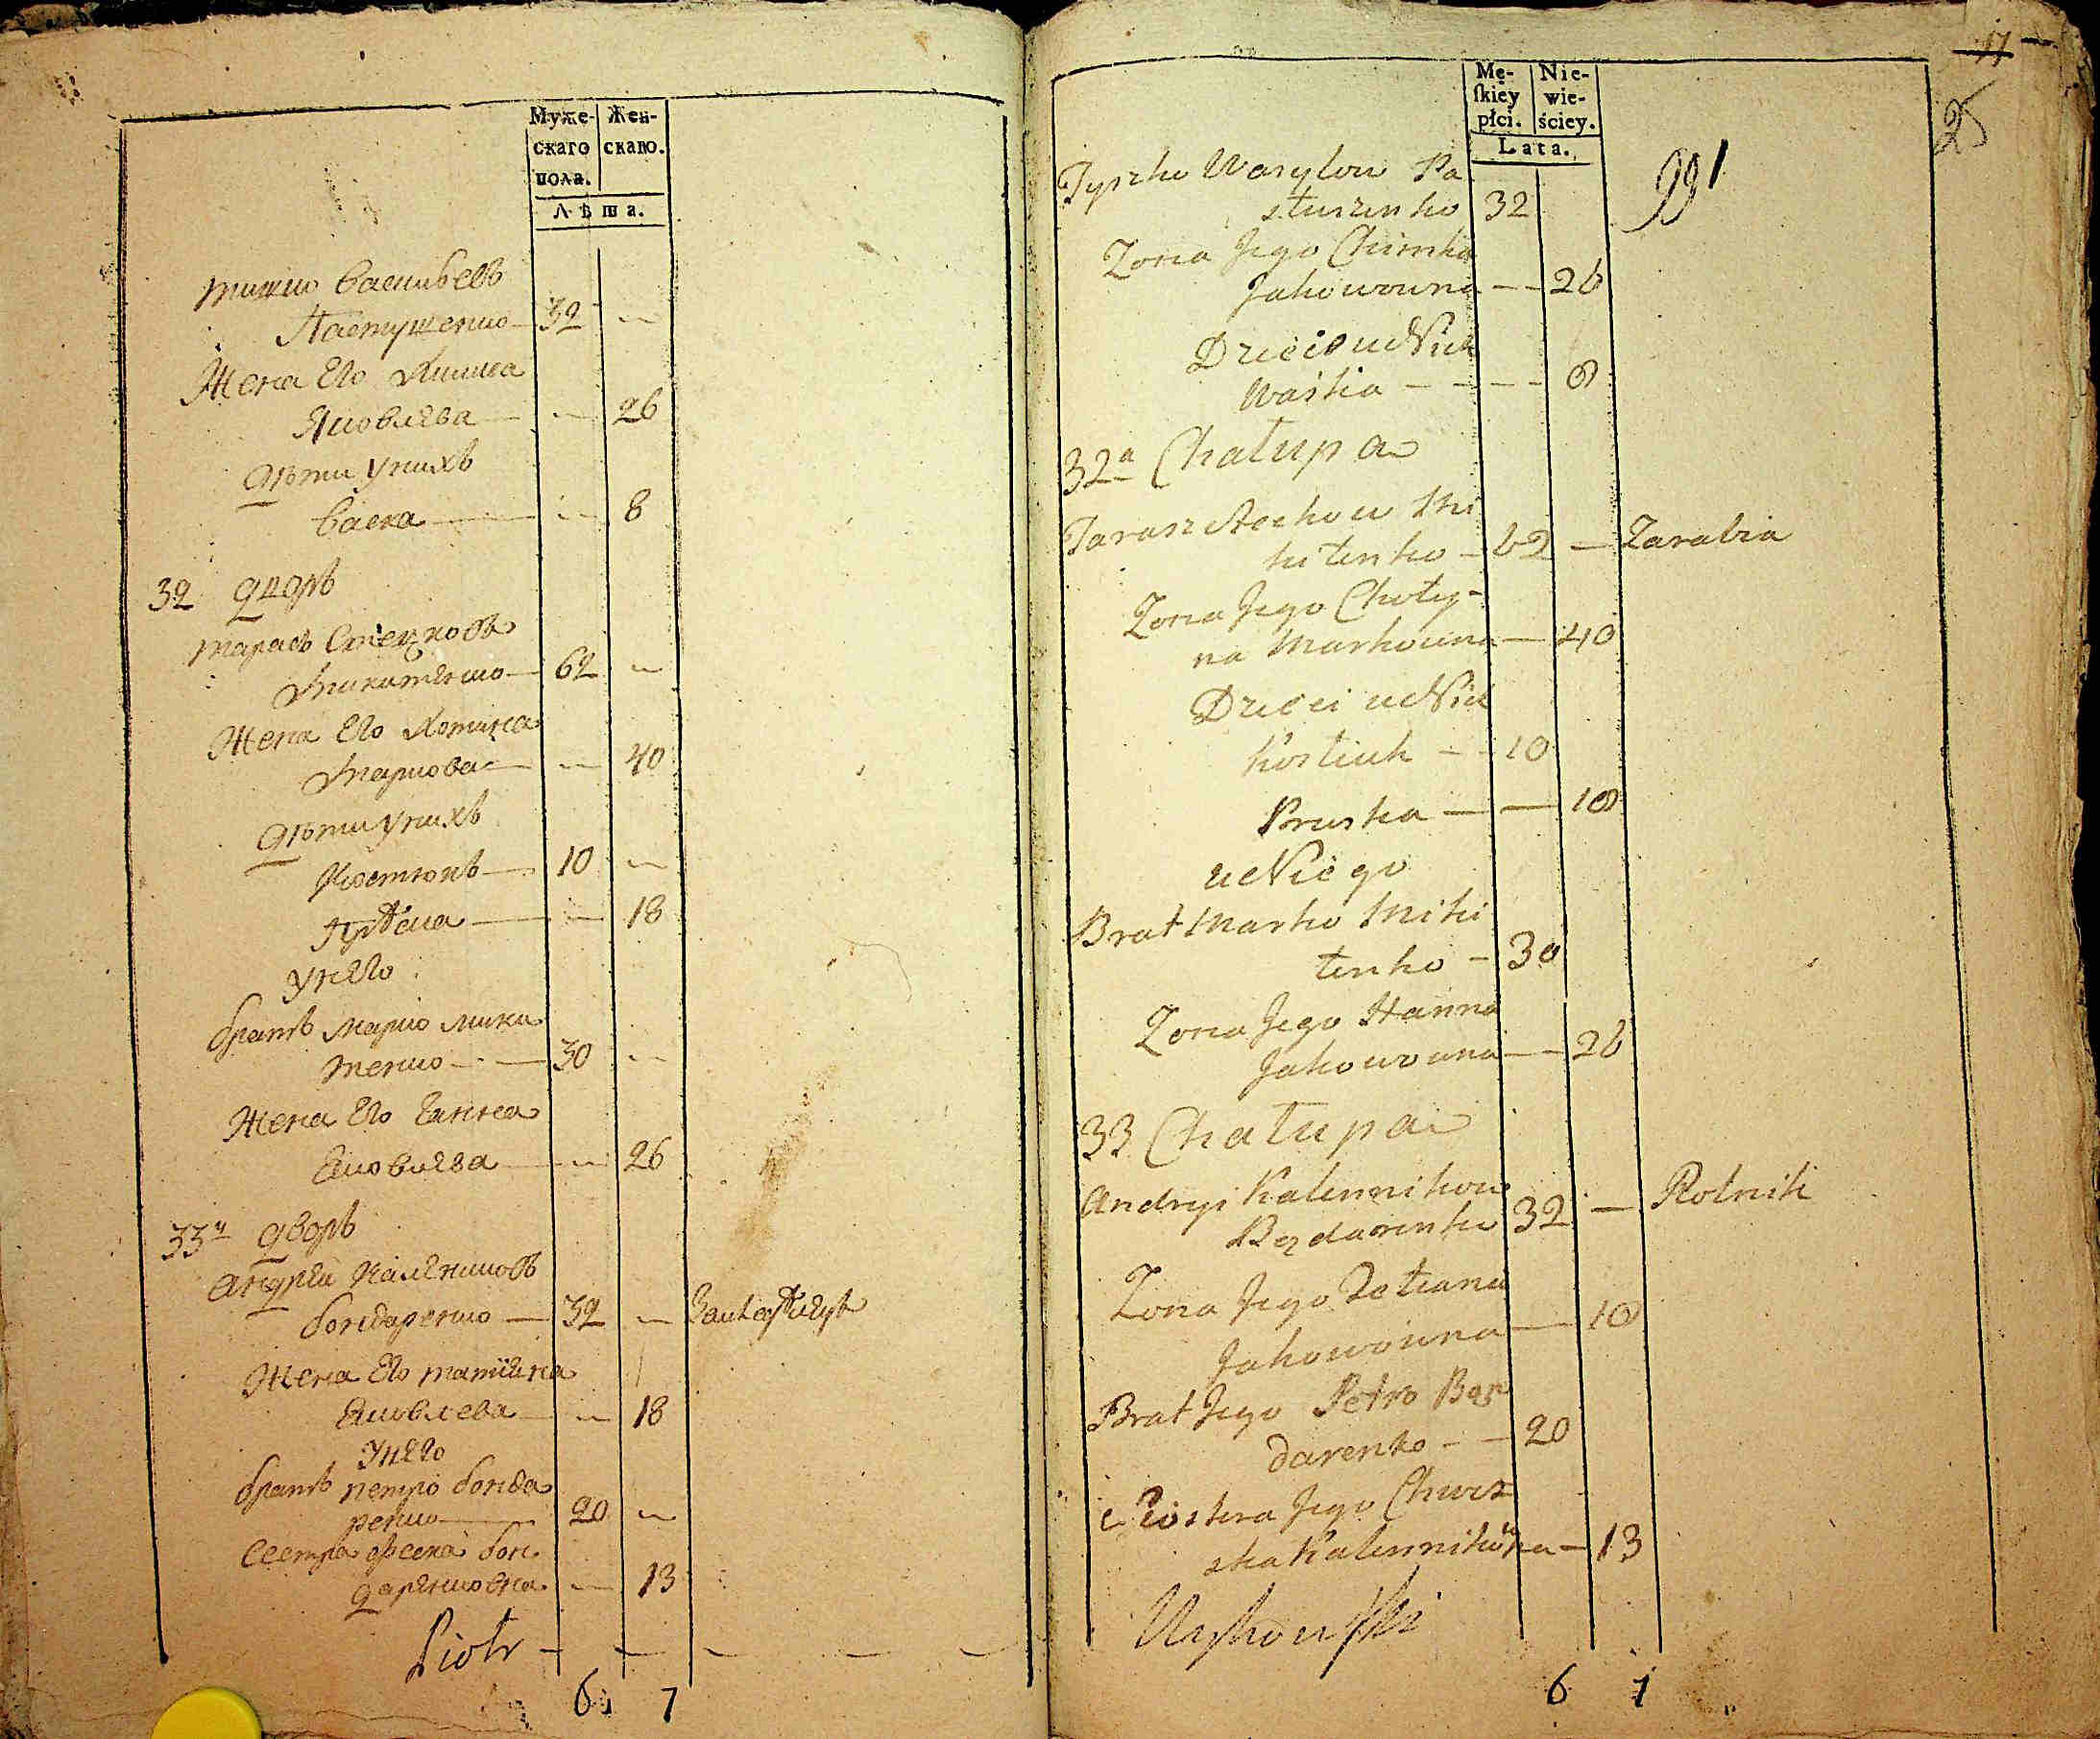 Муже-
скаго
пола.
Жен-
скаго.
Лѣта.
тишко Васильевъ
Пастушенко 32
Жена Его Химка
Яковлева 26
дѣти Унихъ
Васка 8
32 дворъ
тарасъ Стецковъ
Микитенко 62
Жена Его Хотина
Маркова 40
дѣти Унихъ
Костюкъ 10
18
Унего
братъ марко мики
тенко 30
Жена Его Ганна
Яковлева 26
33й дворъ
андрей Калениковъ
бондаренко 32
Жена Его татияна
Яковлева 18
Унего
братъ петро бонда
ренко 20
Сестра феска бон
даренковна 13
Piotr
6 7
17
25
Mę-
ſkiey
płci.
Nie-
wie-
ściey.
Lata.
991
Tyszko Wasylow Pa
stuszenko 32
Zona Jego Chimka
Jakowowna 26
Dzieci u Nich
Waśka 8
32a Chałupa
Tarasz Stechow Mi
kitenko 62 Zarabia
Zona Jego Choty-
na Markowna 40
Dzieci u Nich
Kostiuk 10
Pruska 18
u Niego
Brat Marko Miki
tenko 30
Zona Jego Hanna
Jakowowna 26
33 Chałupa
Andryi Kalennikow
Bondarenko 32 Rolnik
Zona Jego Tetiana
Jakowowna 18
Brat Jego Petro Bon
darenko 20
Siostra Jego Chwes
ka Kalennikowna 13
6 7